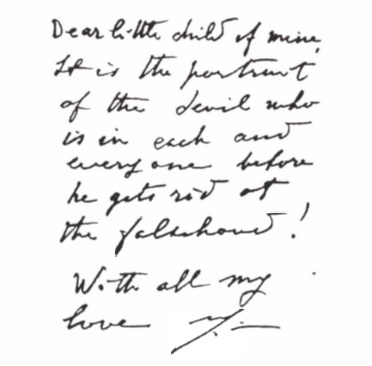 Dear little child of mine,
It is the portrait
of the devil who
is in each and
every one before
he gets rid of
the falsehood!
With all my
love